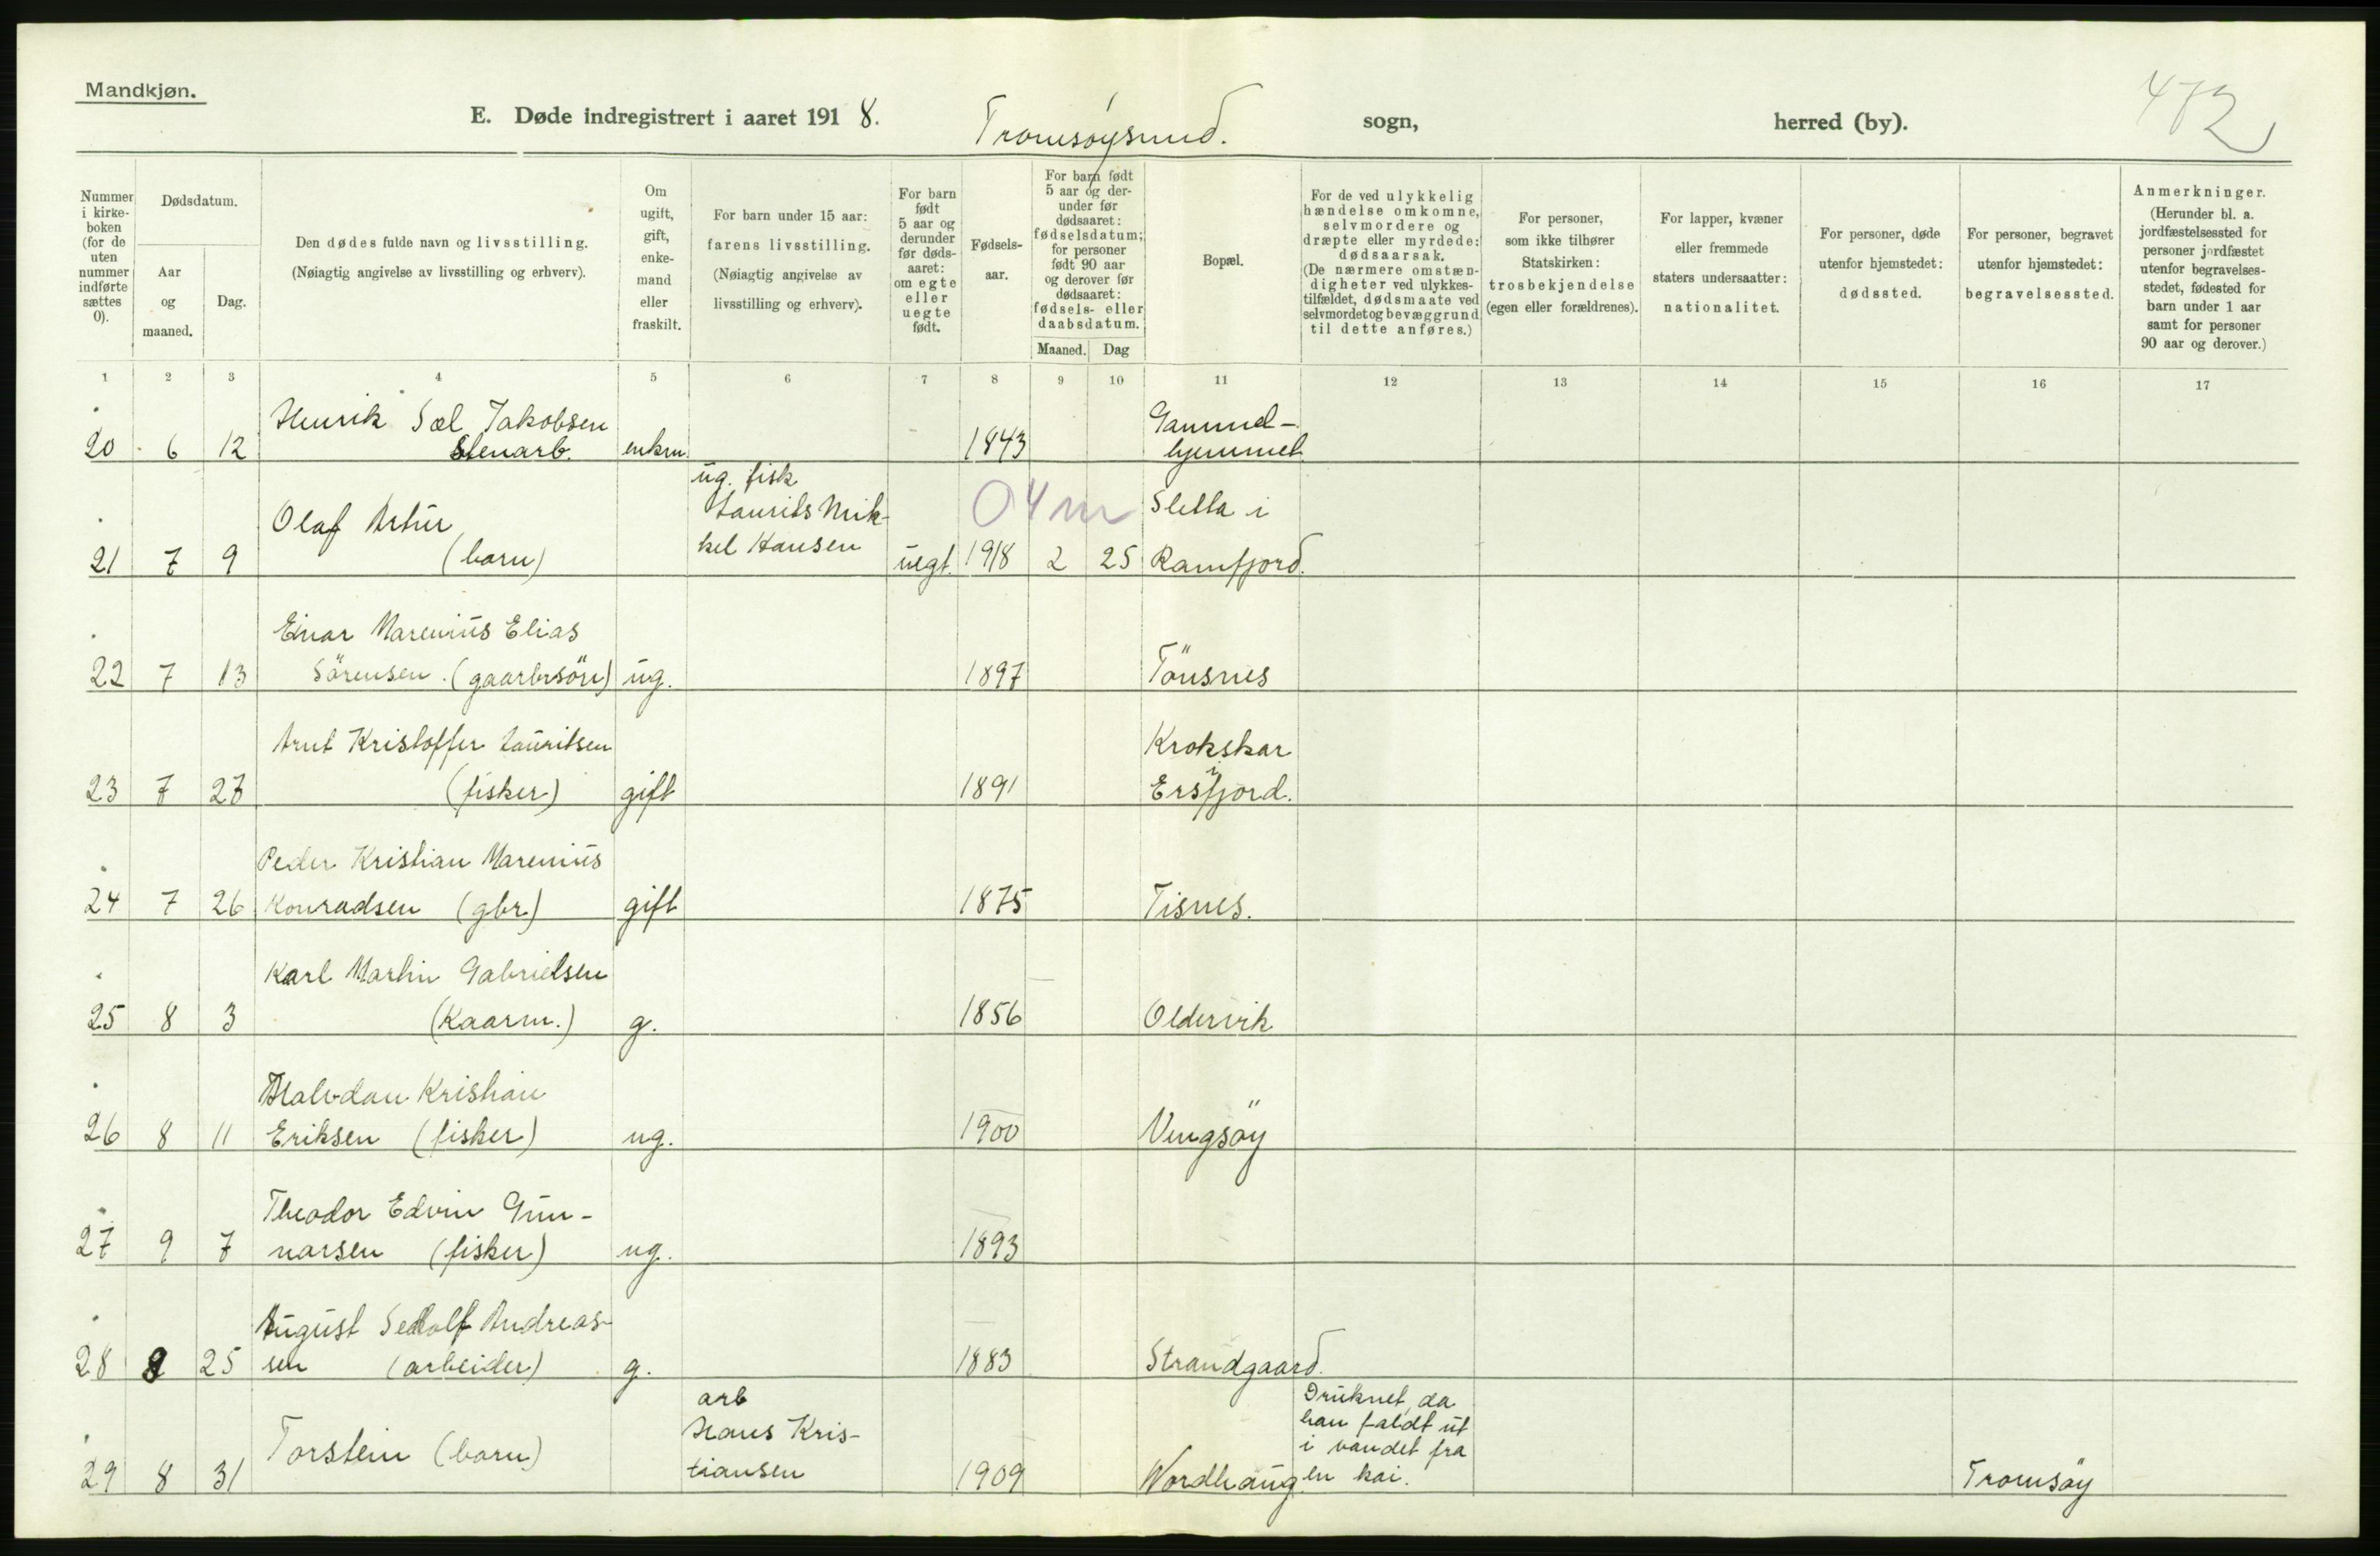 Mandkjøn.
E. Døde indregistrert i aaret 1918. Tromsøysund. sogn, herred (by). 472
Nummer i kirke-boken (for de uten nummer indførte sættes 0).
Dødsdatum.
Aar og maaned.
Dag.
Den dødes fulde navn og livsstilling.
(Nøiagtig angivelse av livsstilling og erhverv).
Om ugift, gift, enke-mand eller fraskilt.
For barn under 15 aar:
farens livsstilling.
(Nøiagtig angivelse av
livsstilling og erhverv).
For barn født 5 aar og derunder før døds-aaret: om egte eller uegte født.
Fødsels-aar.
For barn født 5 aar og der-under før dødsaaret: fødselsdatum; for personer født 90 aar og derover før dødsaaret: fødsels- eller daabsdatum.
Maaned. Dag
Bopæl.
For de ved ulykkelig hændelse omkomne, selvmordere og dræpte eller myrdede: dødsaarsak.
(De nærmere omstæn-digheter ved ulykkes-tilfældet, dødsmaate ved selvmordet og bevæggrund til dette anføres.)
For personer, som ikke tilhører Statskirken: trosbekjendelse (egen eller forældrenes).
For lapper, kvæner eller fremmede staters undersaatter: nationalitet.
For personer, døde utenfor hjemstedet: dødssted.
For personer, begravet utenfor hjemstedet: begravelsessted.
Anmerkninger.
(Herunder bl. a. jordfæstelsessted for personer jordfæstet utenfor begravelses-stedet, fødested for barn under 1 aar samt for personer 90 aar og derover.)
1 2 3 4 5 6 7 8 9 10 11 12 13 14 15 16 17
Henrik Sæl Jakobsen Gammel-
20 6 12 Stenarb. enkm. 1843 hjemmet
ug. fisk
Olaf Artur Laurits Mik- 04m Sletta i
21 7 9 (barn) kel Hansen uegt. 1918 2 25 Ramfjord.
Einar Marenius Elias
22 7 13 Sörensen. (gaarbrsön) ug. 1897 Tönsnes
Arnt Kristoffer Lauritsen Krokskar
23 7 27 (fisker) gift 1891 i Ersfjord.
Peder Kristian Marenius
24 7 26 Konradsen (gbr.) gift 1875 Tisnes.
Karl Martin Gabrielsen
25 8 3 (Kaarm.) g. 1856 Oldervik
Halvdan Kristian
26 8 11 Eriksen (fisker) ug. 1900 Vengsöy
Theodor Edvin Gun-
27 9 7 narsen (fisker) ug. 1893
August Andreas-
28 8 25 sen (arbeider) g. 1883 Strandgaard.
arb Druknet, da
Hans Kris- han faldt ut
Torstein (barn) i vandet fra
29 8 31 tiansen 1909 Nordhaug en kai. Tromsöy